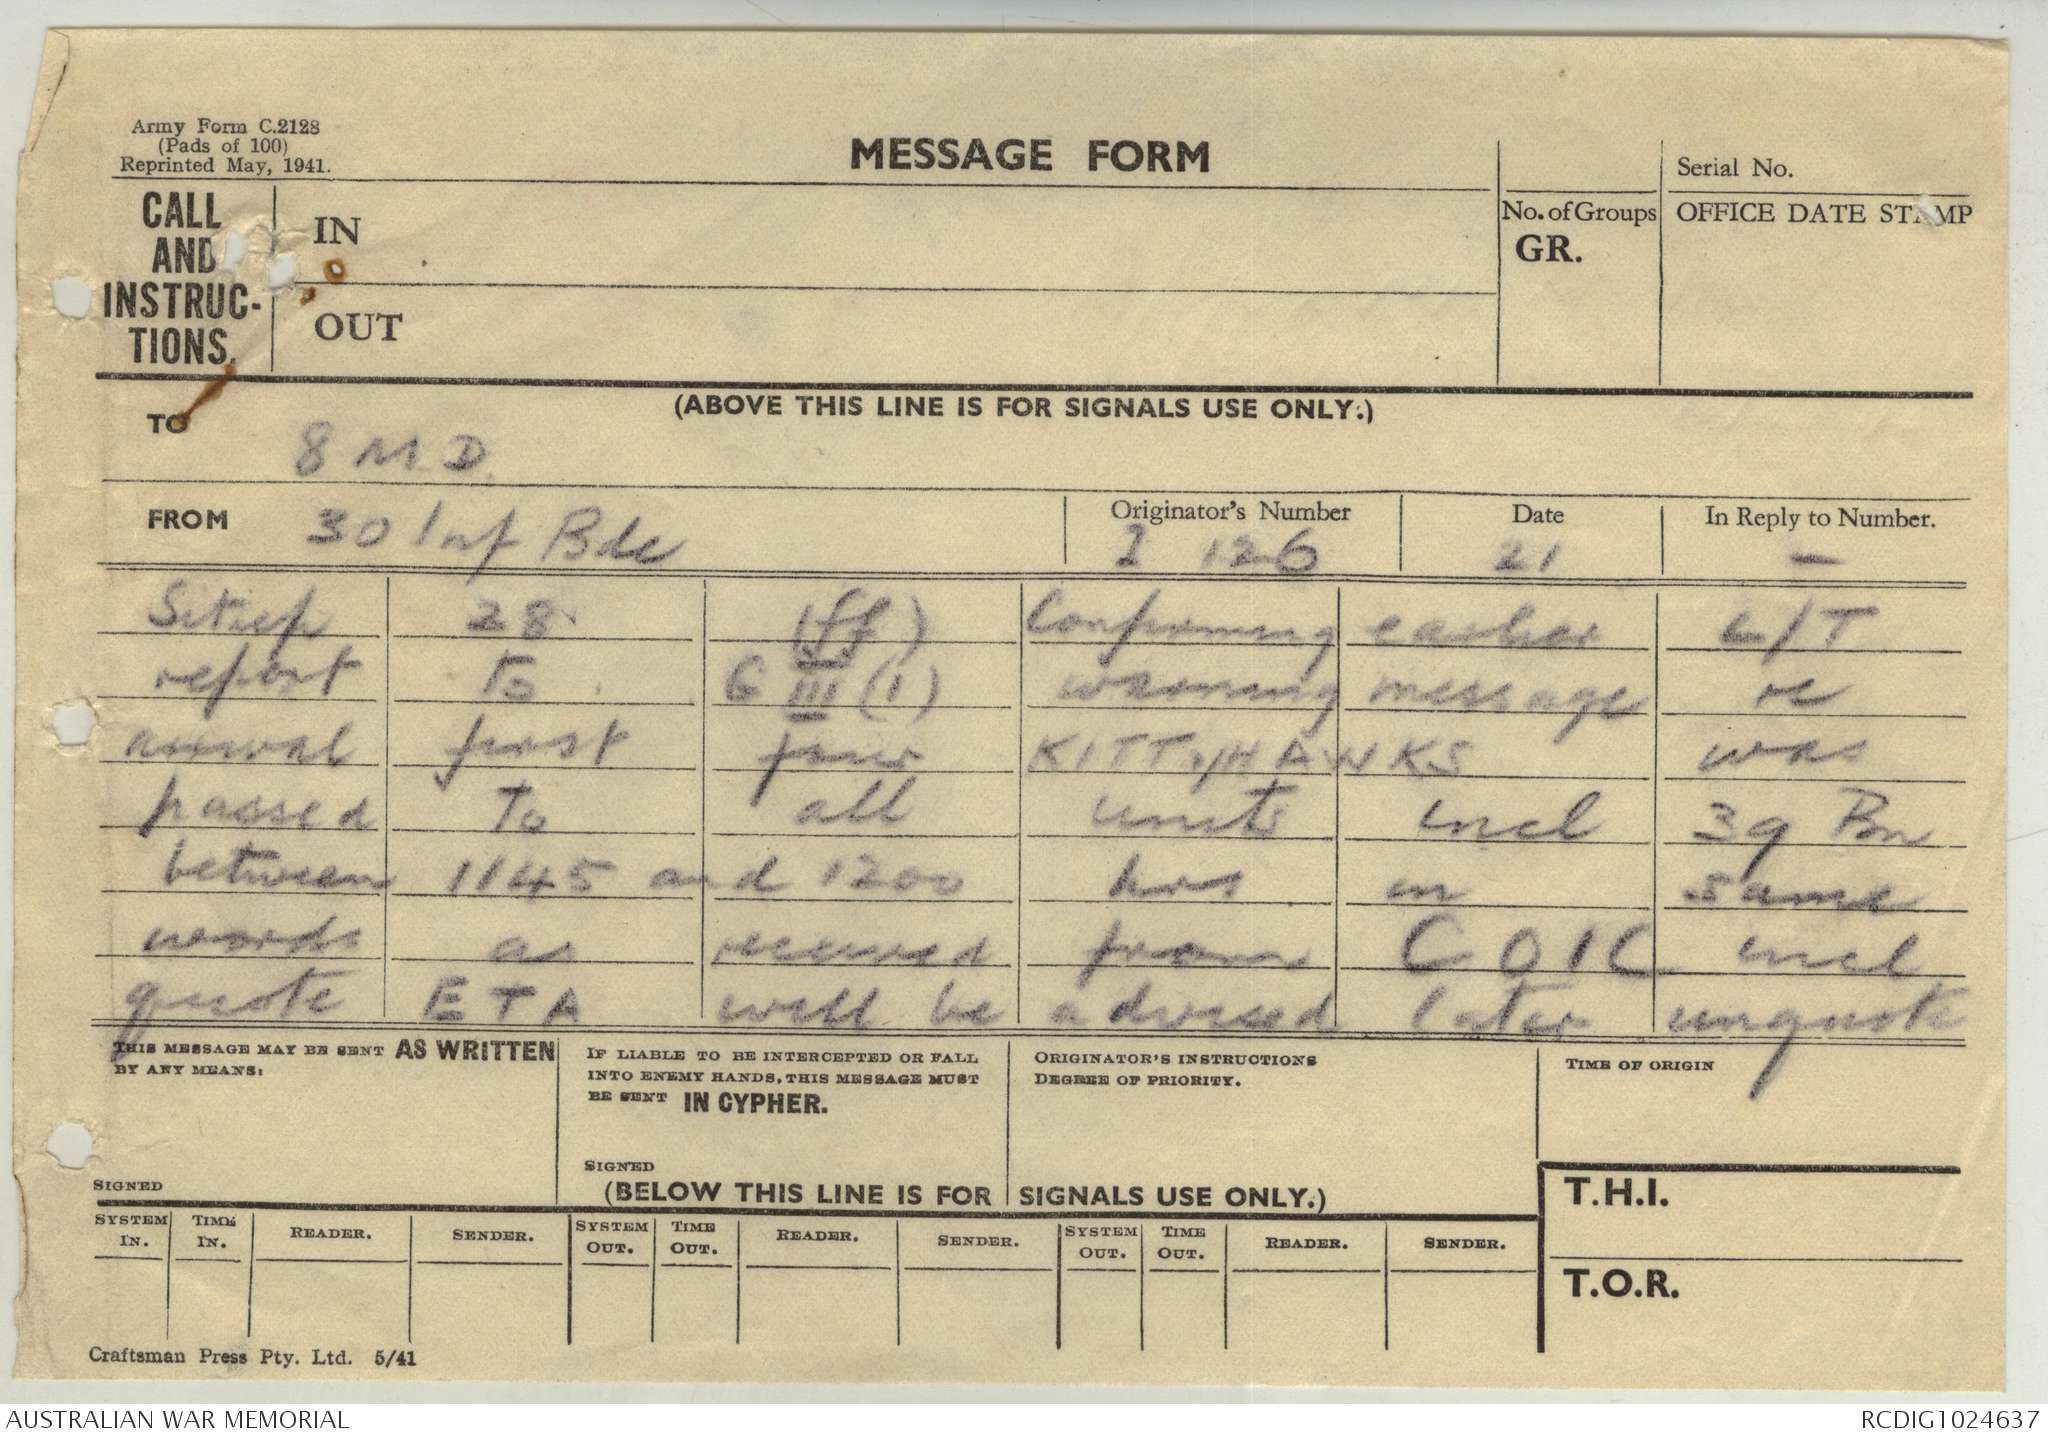 Army Form C.2128
(Pads of 100)
Reprinted May, 1941.
MESSAGE FORM
Serial No.
CALL
AND
INSTRUC-
TIONS.
IN
OUT
No. of Groups
GR.
OFFICE DATE STAMP
(ABOVE THIS LINE IS FOR SIGNALS USE ONLY.)
TO
8 M.D.
FROM
30 Inf Bde
Originator's Number
I 126
Date
21
In Reply to Number.
—
Sitrep 28 (ff) Confirming earlier L/T
report to G III (1) warning message re
arrival first four KITTYHAWKS was
passed to all units incl 39 Bn
between 1145 and 1200 hrs in same
words as received from COIC incl
quote ETA will be advised later unquote
THIS MESSAGE MAY BE SENT AS WRITTEN
BY ANY MEANS:
SIGNED
IF LIABLE TO BE INTERCEPTED OR FALL
INTO ENEMY HANDS, THIS MESSAGE MUST
BE SENT IN CYPHER.
SIGNED
ORIGINATOR'S INSTRUCTIONS
DEGREE OF PRIORITY.
TIME OF ORIGIN
(BELOW THIS LINE IS FOR SIGNALS USE ONLY.)
T.H.I.
SYSTEM IN. TIME IN. READER. SENDER. SYSTEM OUT. TIME OUT. READER. SENDER. SYSTEM OUT. TIME OUT. READER. SENDER.
T.O.R.
Craftsman Press Pty. Ltd. 5/41
AUSTRALIAN WAR MEMORIAL
RCDIG1024637